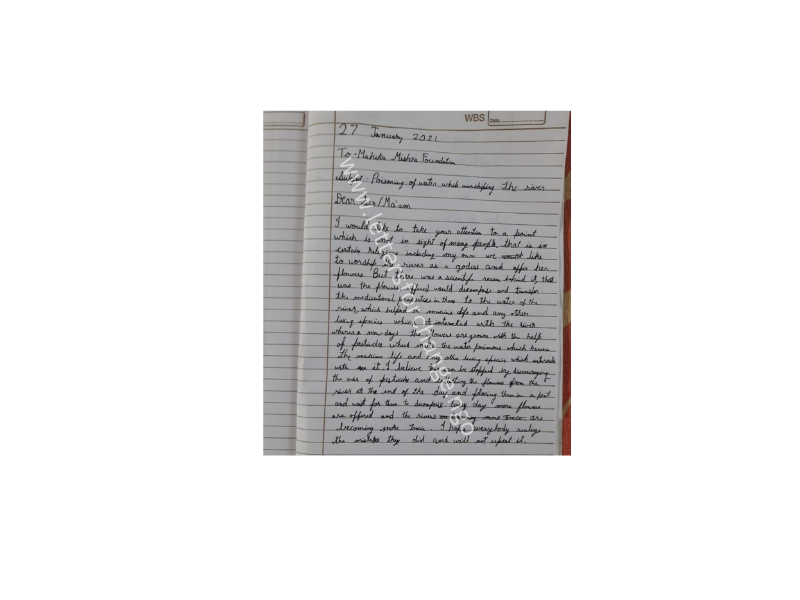 WBS
Date
27 January 2021
To - Mahika Mishra Foundation
Subject - Poisoning of water while worshiping the river
Dear Sir/Ma'am
I would like to take your attention to a point
which is not in sight of many people that is in
certain religions including my own we would like
to worship the river as a godess and offer her
flowers. But there was a scientific reason behind it, that
was the flowers offered would decompose and transfer
the medicational properties in them to the water of the
river, which helped in marine life and any other
living species which interacted with the river
whereas now-days the flowers are grown with the help
of pesticides which make the water poisonous which harms
the marine life and any other living species which interacts
with it. I believe this can be stopped by discouraging
the use of pesticides and the flowers from the
river at the end of the day and placing them in a pit
and wait for them to decompose. Every day more flowers
are offered and the rivers more toxic are
becoming more toxic. I hope everybody realizes
the mistakes they did and will not repeat it.
www.lettersforchange.ngo